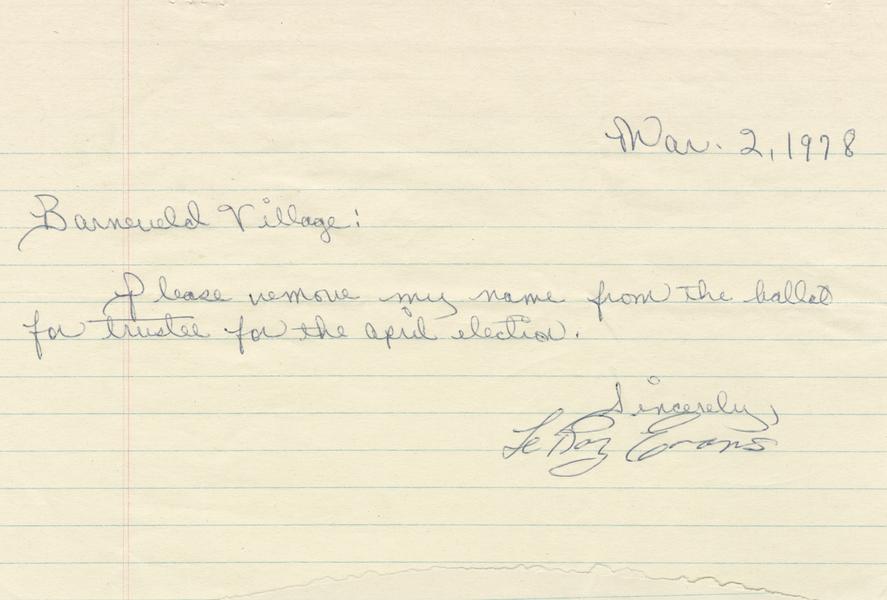 Mar. 2, 1978
Barneveld Village:
Please remove my name from the ballot
for trustee for the april election.
Sincerely,
LeRoy Evans